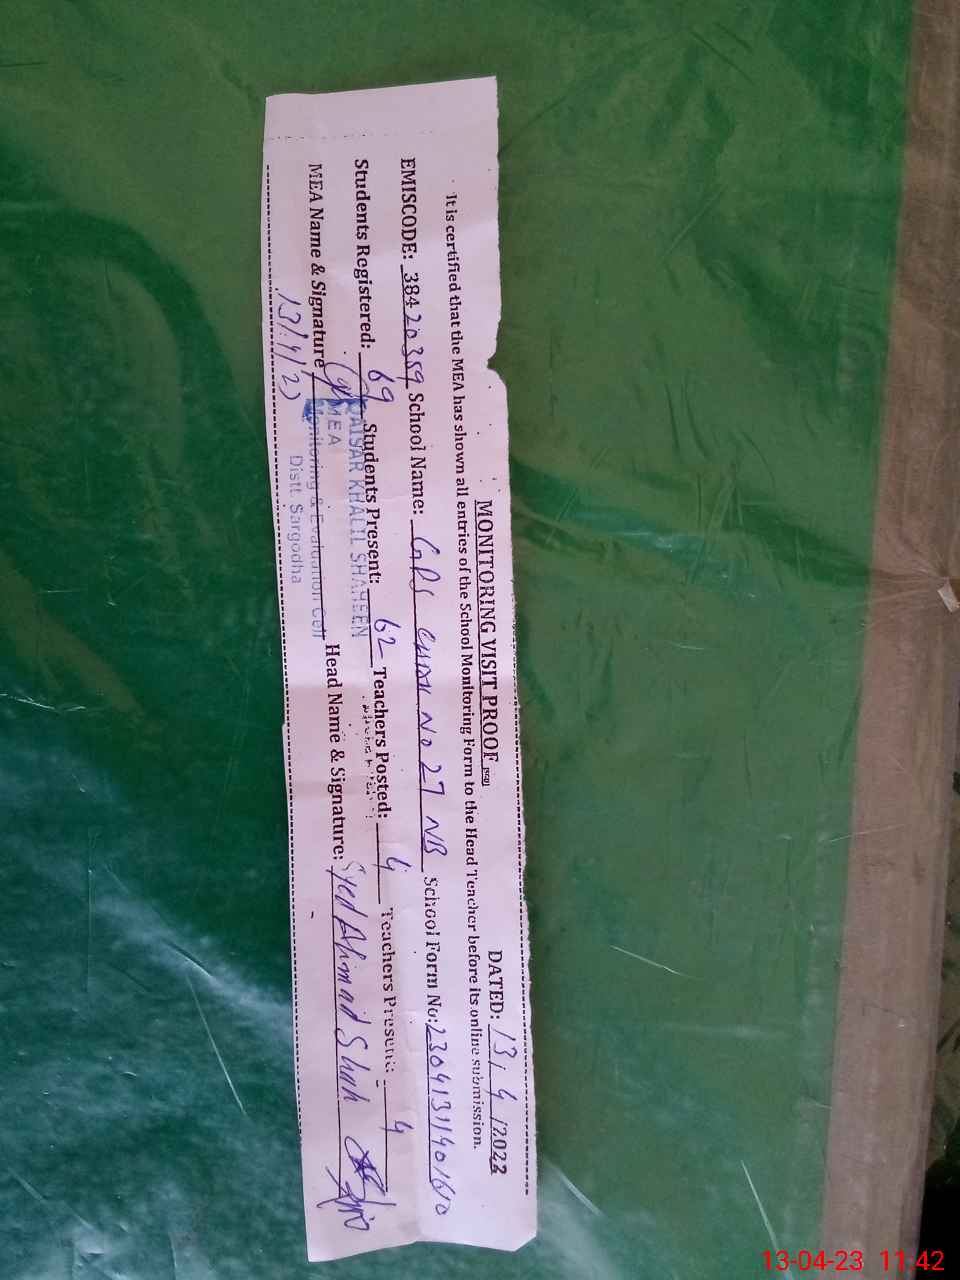 MONITORING VISIT PROOF
DATED: 13/4/2023
It is certified that the MEA has shown all entries of the School Monitoring Form to the Head Teacher before its online submission.
EMISCODE: 38420359 School Name: GPS CHAK No 27 NB School Form No: 2304131140160
Students Registered: 69 Students Present: 62 Teachers Posted: 4 Teachers Present: 4
MEA Name & Signature Head Name & Signature: Syed Ahmad Shah
QAISAR KHALIL SHAHEEN
MEA
Monitoring & Evaluation Cell
Distt. Sargodha
13/4/2)
13-04-23 11:42